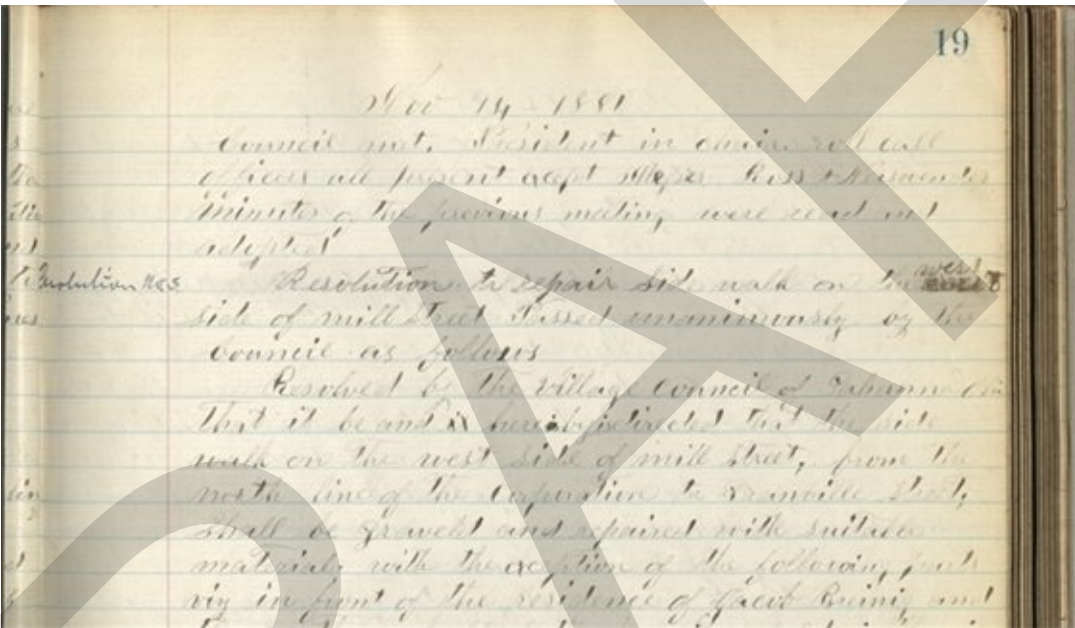 19
Nov 14 1881
Council met. President in chair roll call
officers all present except Messrs Ross &
minutes of the previous meeting were read and
adopted
Resolution No 3
Resolution to repair side walk on the west
side of mill Street Passed unanimously by the
Council as follows
Resolved by the Village Council of Gahanna
that it be and is hereby directed that the side
walk on the west side of mill Street, from the
north line of the Corporation to Granville Street,
Shall be Gravelt and repaired with suitable
material, with the exception of the following parts
viz in front of the residence of Jacob and